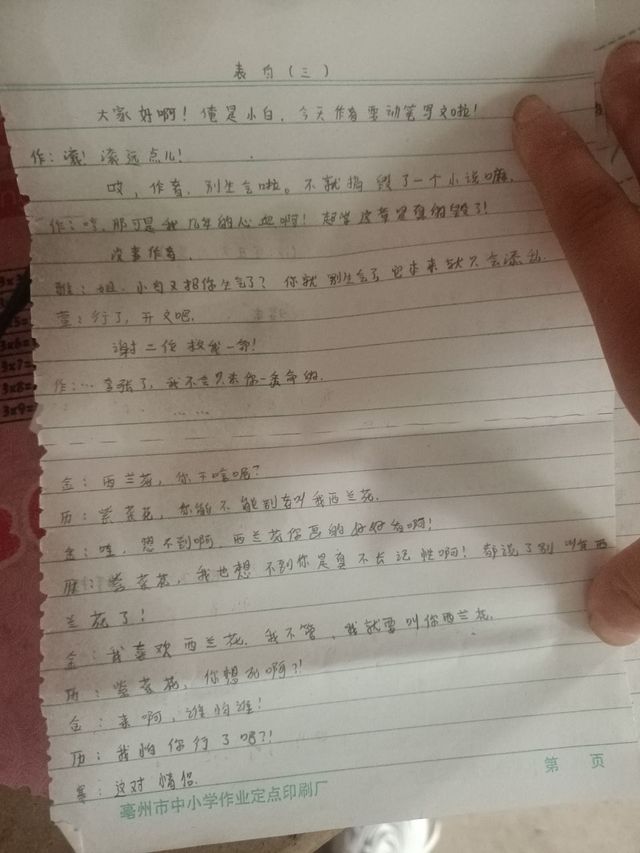 表白(三)
大家好啊!俺是小白,今天作者要动笔写文啦!
作:滚!滚远点儿!
哎,作者,别生气啦。不就搞毁了一个小说嘛。
作:哼,那可是我几年的心血啊!起学费是真的毁了!
没事作者,
雅:姐,小白又把你欠气了?你就别生气了它本来就只会添乱
莹:行了,开文吧。
谢二位救我一命!
作:…夸张了,我不会只杀你一条命的。
……
金:西兰花,你干啥呢?
历:紫菜花,你能不能别喊我西兰花。
金:哇,想不到啊,西兰花你画的好好看啊!
历:紫菜花,我也想不到你是真不长记性啊!都说了别叫我西
兰花了!
金:我喜欢西兰花,我不管,我就要叫你西兰花。
历:紫菜花,你想死啊?!
金:来啊,谁怕谁!
历:我怕你行了吧?!
寒:这对情侣
第 页
亳州市中小学作业定点印刷厂
3x6=
3x7=
3x8=
3x9=